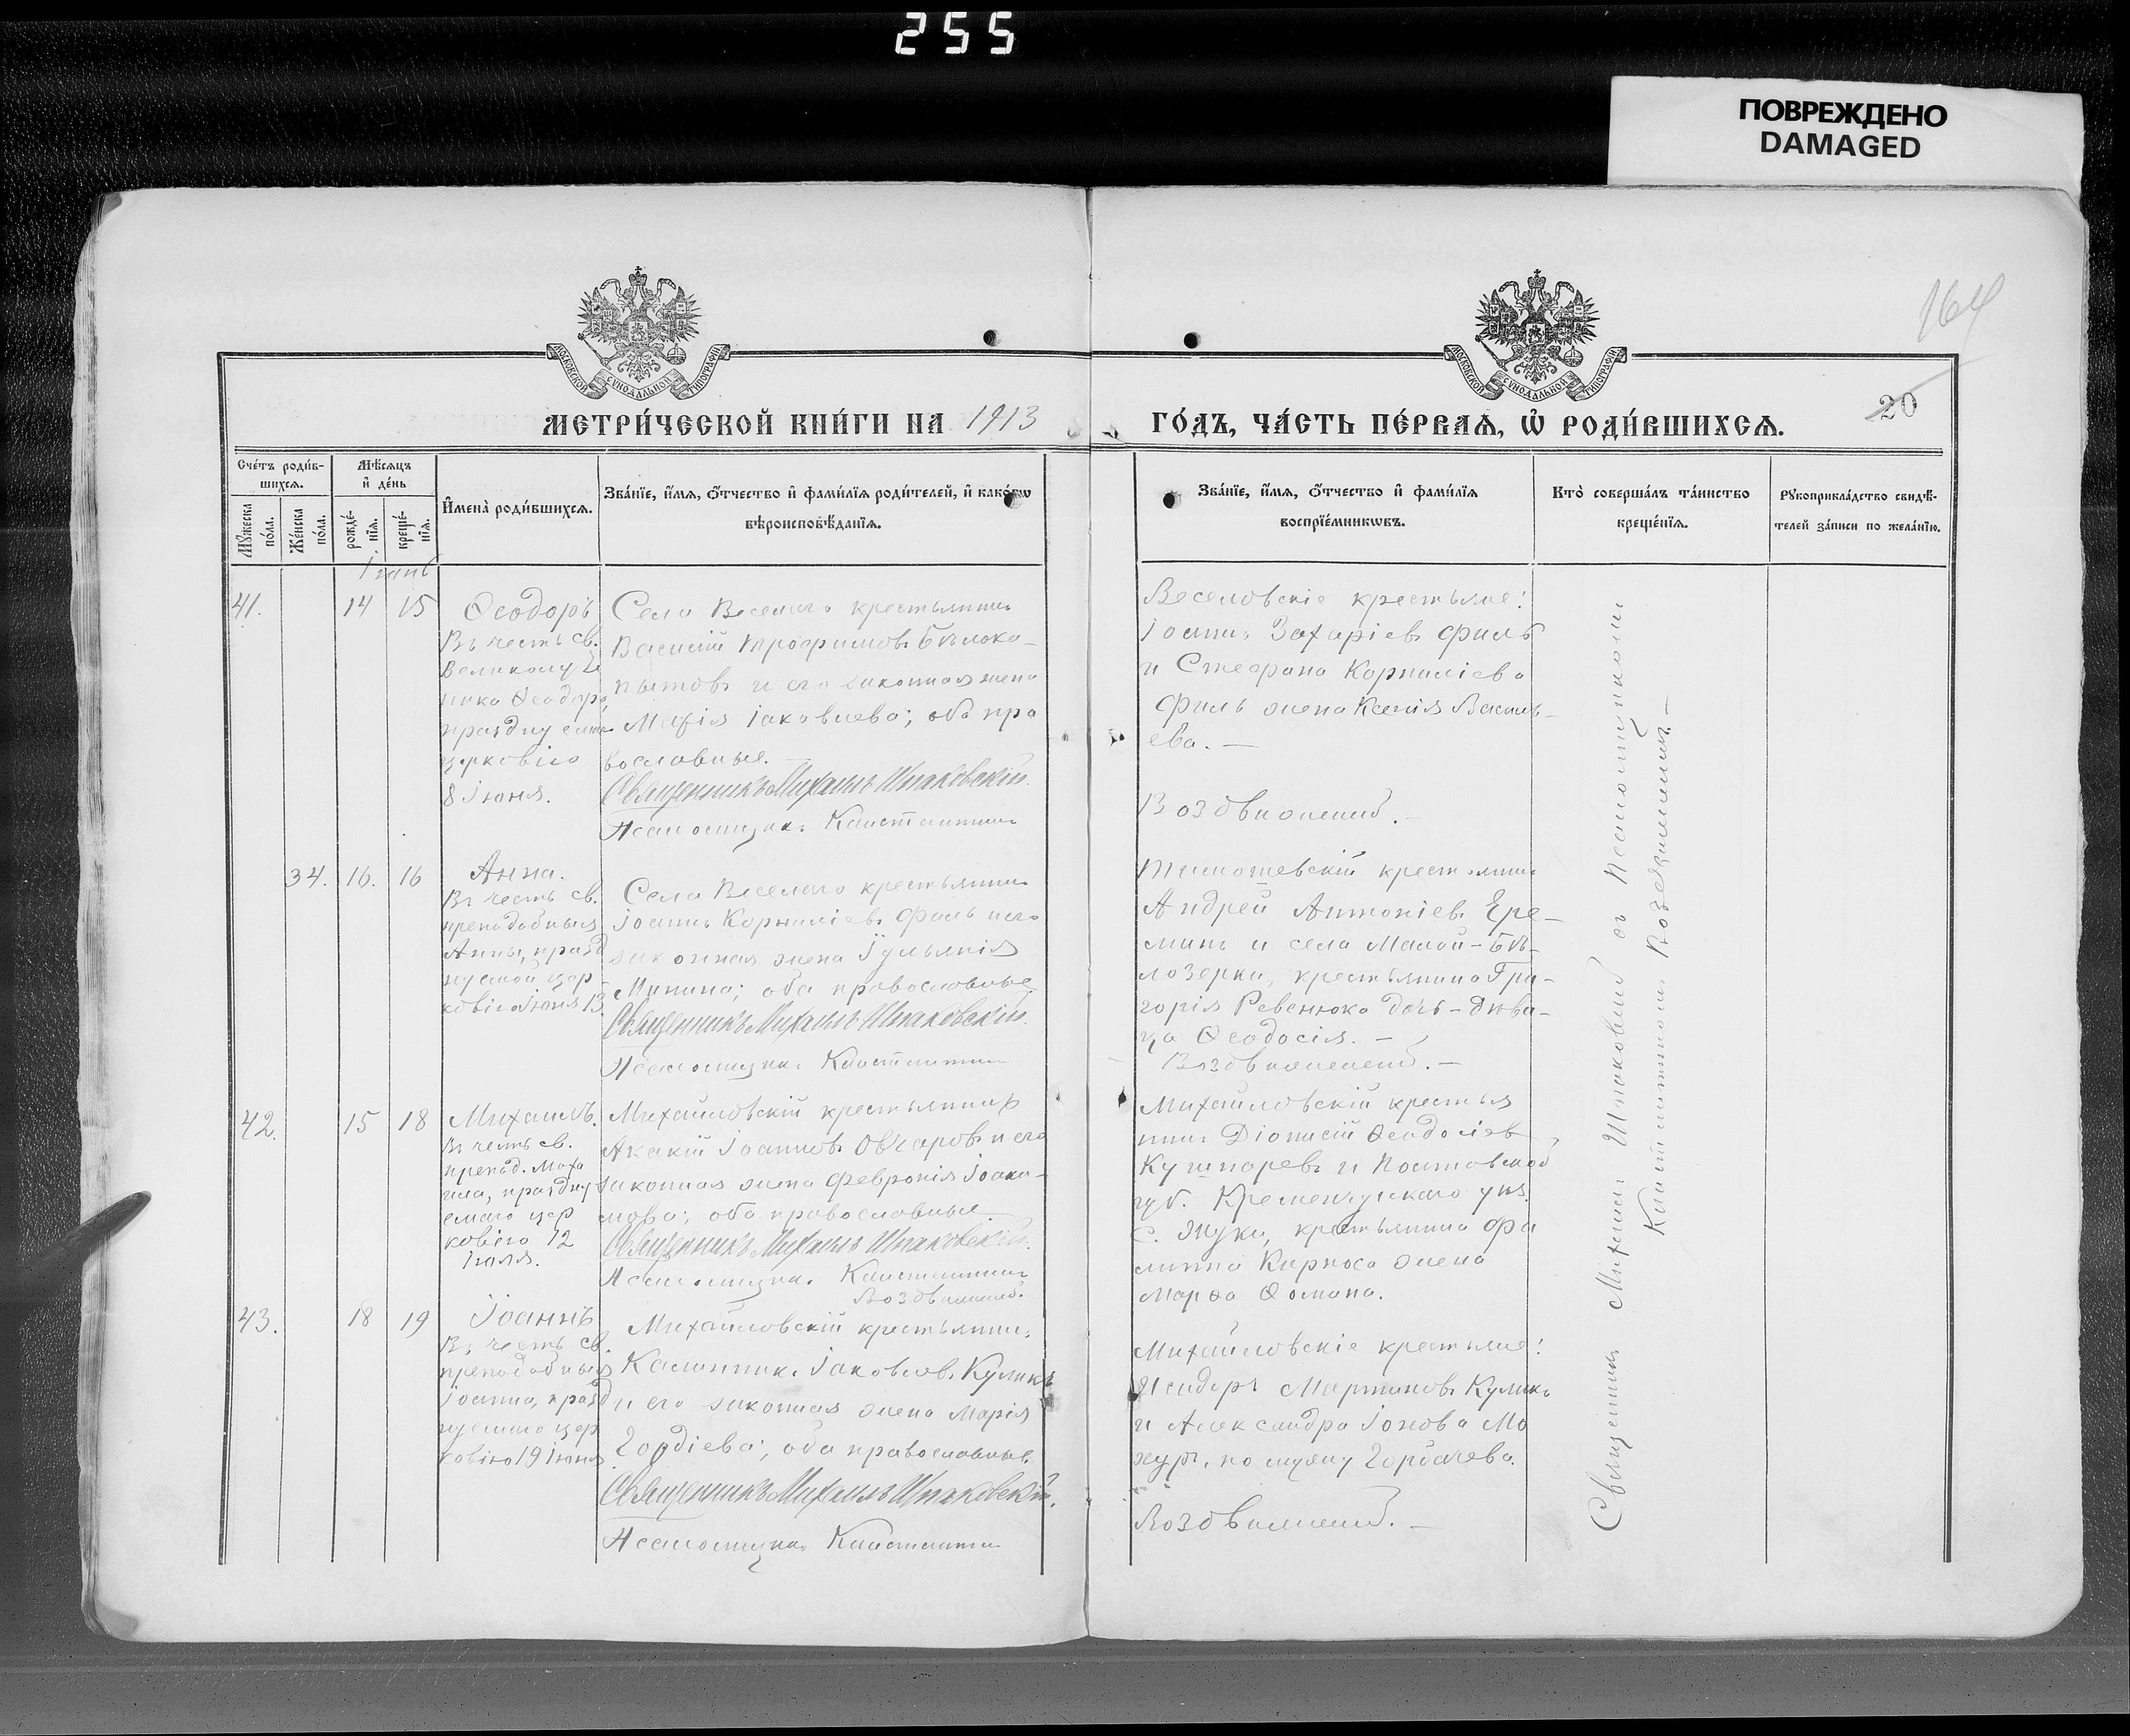 255
ПОВРЕЖДЕНО
DAMAGED
164
20
МОСКОВСКОЙ СУНОДАЛЬНОЙ ТИПОГРАФІИ
МОСКОВСКОЙ СУНОДАЛЬНОЙ ТИПОГРАФІИ
МЕТРИ́ЧЕСКОЙ КНИ́ГИ НА 1913
ГО́ДЪ, ЧА́СТЬ ПЕ́РВАѦ, Ѡ҆ РОДИ́ВШИХСѦ.
Сче́тъ роди́в-
шихсѧ.
Мꙋ́жеска
по́ла.
Же́нска
по́ла.
Мѣ́сѧцъ
и҆ де́нь
рожде́-
нїѧ.
креще́-
нїѧ.
И҆мена̀ роди́вшихсѧ.
Зва́нїе, и҆́мѧ, ѻ҆́тчество и҆ фами́лїѧ роди́телей, и҆ како́гѡ
вѣроисповѣ́данїѧ.
Зва́нїе, и҆́мѧ, ѻ҆́тчество и҆ фами́лїѧ
воспрїе́мникѡвъ.
Кто̀ соверша́лъ та́инство
креще́нїѧ.
Рꙋкоприкла́дство свидѣ́-
телей за́писи по жела́нїю.
Іюнь
41.
14 15
Ѳеодоръ
Въ честь св.
Великомуче
ника Ѳеодора,
празднуемаго
церковію
8 Іюня.
Села Веселаго крестьянинъ
Василій Трофимовъ Бѣлоко-
пытовъ и его законная жена
Марія Іаковлева; оба пра
вославные.
Священникъ Михаилъ Шпаковскій.
Псаломщикъ Константинъ
Веселовскіе крестьяне:
Іоаннъ Захаріевъ Филь
и Стефана Корниліева
Филь жена Ксенія Василь-
ева. —
Воздвиженскій. —
34. 16. 16
Анна.
Въ честь св.
преподобныя
Анны, празд
нуемой цер
ковію Іюня 13.
Села Веселаго крестьянинъ
Іоаннъ Корниліевъ Филь и его
законная жена Іуліанія
Минина; оба православные.
Священникъ Михаилъ Шпаковскій.
Псаломщикъ Константинъ
Тимошевскій крестьянинъ
Андрей Антоніевъ Ере-
минъ и села Малой-Бѣ-
лозерки, крестьянина Гри-
горія Ревенюка дочь-дѣви-
ца Ѳеодосія. —
Воздвиженскій. —
42. 15 18
Михаилъ.
Въ честь св.
препод. Миха
ила, праздну
емаго цер
ковію 12
Іюля.
Михайловскій крестьянинъ
Акакій Іоанновъ Овчаровъ и его
законная жена Февронія Іоаки-
мова; оба православные
Священникъ Михаилъ Шпаковскій.
Псаломщикъ Константинъ
Воздвиженскій.
Михайловскій крестья
нинъ Діонисій Ѳеодосіев
Кушнаревъ и Полтавской
губ. Кременчугскаго уѣз.
с. Жуки, крестьянина Фи
липпа Кирноса жена
Марѳа Ѳомина.
43. 18 19
Іоаннъ
Въ честь св.
преподобныя
Іоанна, празд
нуемаго цер
ковію 19 Іюня
Михайловскій крестьянинъ
Каллиникъ Іаковлевъ Куликъ
и его законная жена Марія
Гордіева; оба православные
Священникъ Михаилъ Шпаковскій.
Псаломщикъ Константинъ
Михайловскіе крестьяне:
Исидоръ Мартиновъ Куликъ
и Александра Іонова Мо
хуръ, по мужу Горбачева.
Воздвиженскій. —
Священникъ Михаилъ Шпаковскій съ псаломщикомъ
Константиномъ Воздвиженскимъ. —